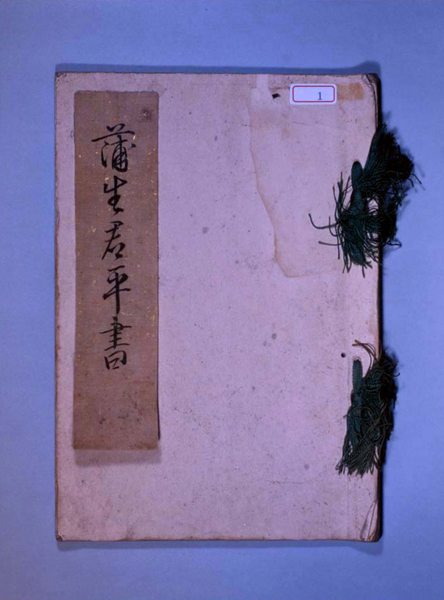 蒲生君平書
1